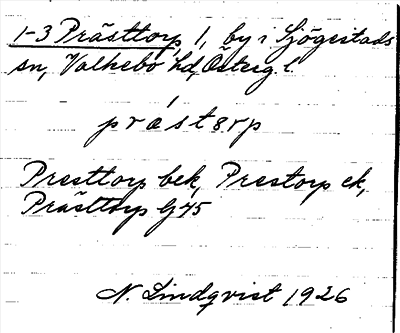 1-3 Prästtorp 1, by i Sjögestads
sn, Valkebo hd, Österg. l.
prástɵrp
Presttorp bek, Prestorp ek,
Prästtorp GJ 45
N. Lindqvist 1926